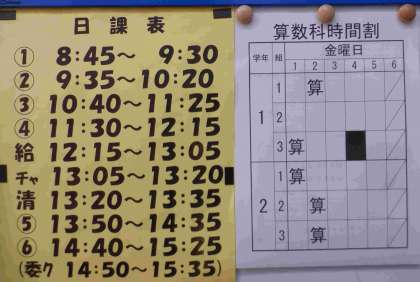 日課表
① 8:45～ 9:30
② 9:35～10:20
③ 10:40～11:25
④ 11:30～12:15
給 12:15～13:05
チャ 13:05～13:20
清 13:20～13:35
⑤ 13:50～14:35
⑥ 14:40～15:25
(委ク 14:50～15:35)
算数科時間割
学年 組 金曜日
1 2 3 4 5 6
1 1 算
2
3 算
2 1 算
2 算
3 算